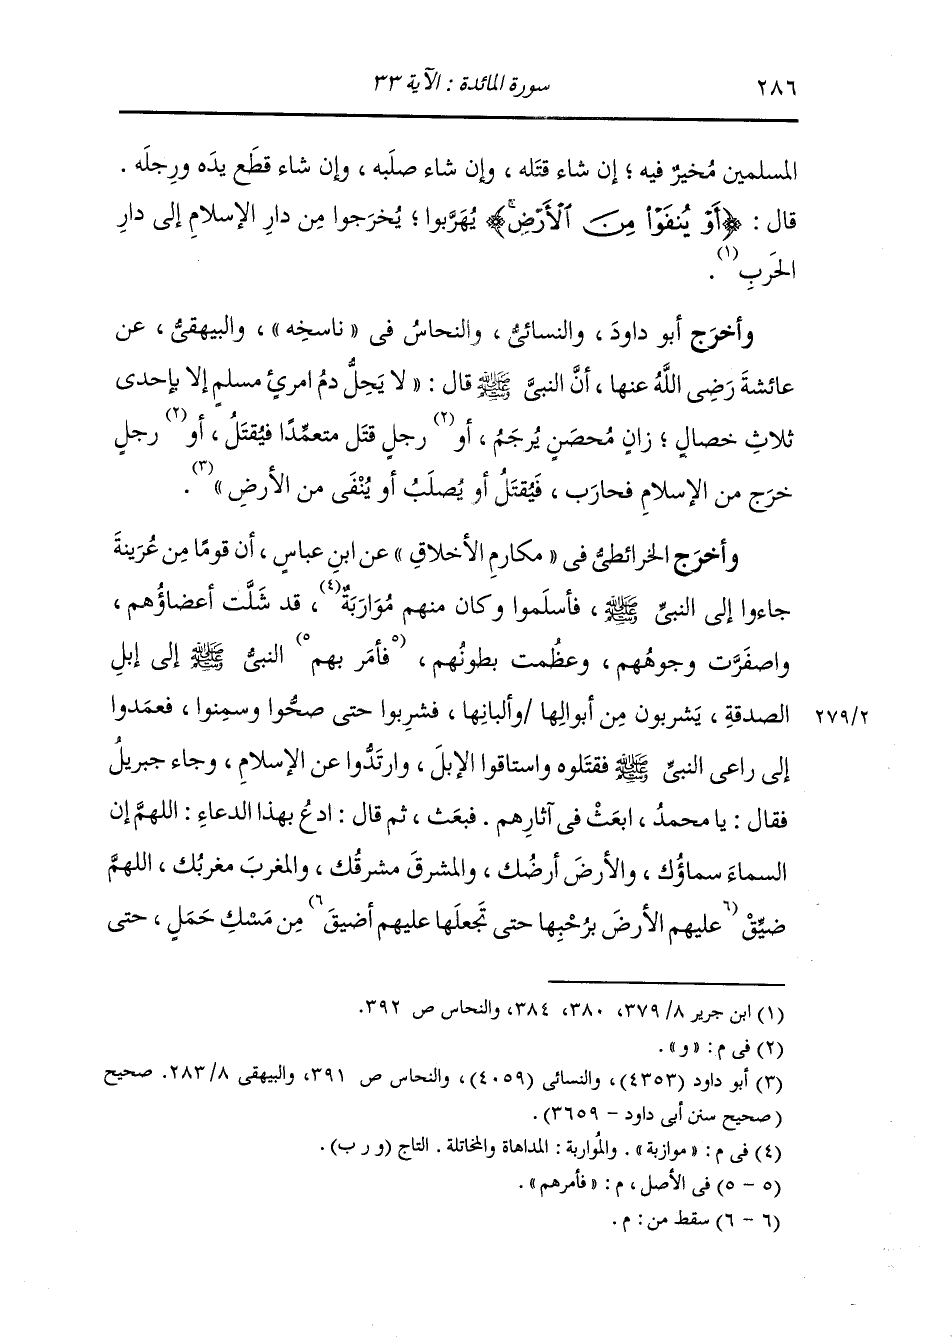 ٢٨٦
سورة المائدة : الآية ٣٣
المسلمين مُخيرٌ فيه ؛ إن شاء قتَله ، وإن شاء صلَبه ، وإن شاء قطَع يدَه ورِجلَه .
قال : ﴿أَوْ يُنفَوْا۟ مِنَ ٱلْأَرْضِۚ﴾ يُهَرَّبوا ؛ يُخرَجوا مِن دارِ الإسلامِ إلى دارِ
الحَربِ(١).
وأخرَج أبو داودَ ، والنسائىُّ ، والنحاسُ فى « ناسخِه » ، والبيهقىُّ ، عن
عائشةَ رَضِى اللَّهُ عنها ، أنَّ النبىَّ ﷺ قال : « لا يَحِلُّ دمُ امرئٍ مسلمٍ إلا بإحدى
ثلاثِ خصالٍ ؛ زانٍ مُحصَنٍ يُرجَمُ ، أو(٢) رجلٍ قتَل متعمِّدًا فيُقتَلُ ، أو(٢) رجلٍ
خرَج من الإسلامِ فحارَب ، فَيُقتَلُ أو يُصلَبُ أو يُنْفَى من الأرضِ »(٣).
وأخرَج الخرائطىُّ فى « مكارمِ الأخلاقِ » عن ابنِ عباسٍ ، أن قومًا مِن عُرَينةَ
جاءوا إلى النبىِّ ﷺ ، فأسلَموا وكان منهم مُوَارَبَةٌ(٤) ، قد شَلَّت أعضاؤُهم ،
واصفَرَّت وجوهُهم ، وعظُمت بطونُهم ، (٥فأمَر بهم٥) النبىُّ ﷺ إلى إبلِ
الصدقةِ ، يَشربون مِن أبوالِها /وألبانِها ، فشرِبوا حتى صحُّوا وسمِنوا ، فعمَدوا ٢٧٩/٢
إلى راعى النبىِّ ﷺ فقتَلوه واستاقوا الإبلَ ، وارتَدُّوا عن الإسلامِ ، وجاء جبريلُ
فقال : يا محمدُ ، ابعَثْ فى آثارِهم . فبعَث ، ثم قال : ادعُ بهذا الدعاءِ : اللهمَّ إن
السماءَ سماؤُك ، والأرضَ أرضُك ، والمشرقَ مشرقُك ، والمغربَ مغربُك ، اللهمَّ
ضيِّقْ (٦عليهم الأرضَ برُحْبِها حتى تَجعلَها عليهم أضيقَ٦) مِن مَسْكِ حَمَلٍ ، حتى
(١) ابن جرير ٨/ ٣٧٩، ٣٨٠، ٣٨٤، والنحاس ص ٣٩٢.
(٢) فى م : «و» .
(٣) أبو داود (٤٣٥٣)، والنسائى (٤٠٥٩)، والنحاس ص ٣٩١، والبيهقى ٨/ ٢٨٣. صحيح
(صحيح سنن أبى داود - ٣٦٥٩).
(٤) فى م : « موازبة» . والمُواربة : المداهاة والمخاتلة . التاج (و ر ب).
(٥ - ٥) فى الأصل ، م : «فأمرهم» .
(٦ - ٦) سقط من : م .